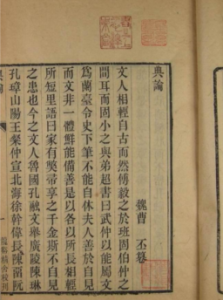 典論
魏曹丕撰
文人相輕自古而然傅毅之於班固伯仲之
間耳而固小之與弟超書曰武仲以能屬文
爲蘭臺令史下筆不能自休夫人善於自見
而文非一體鮮能備善是以各以所長相輕
所短里語曰家有弊帚享之千金斯不自見
之患也今之文人魯國孔融文舉廣陵陳琳
孔璋山陽王粲仲宣北海徐幹偉長陳留阮